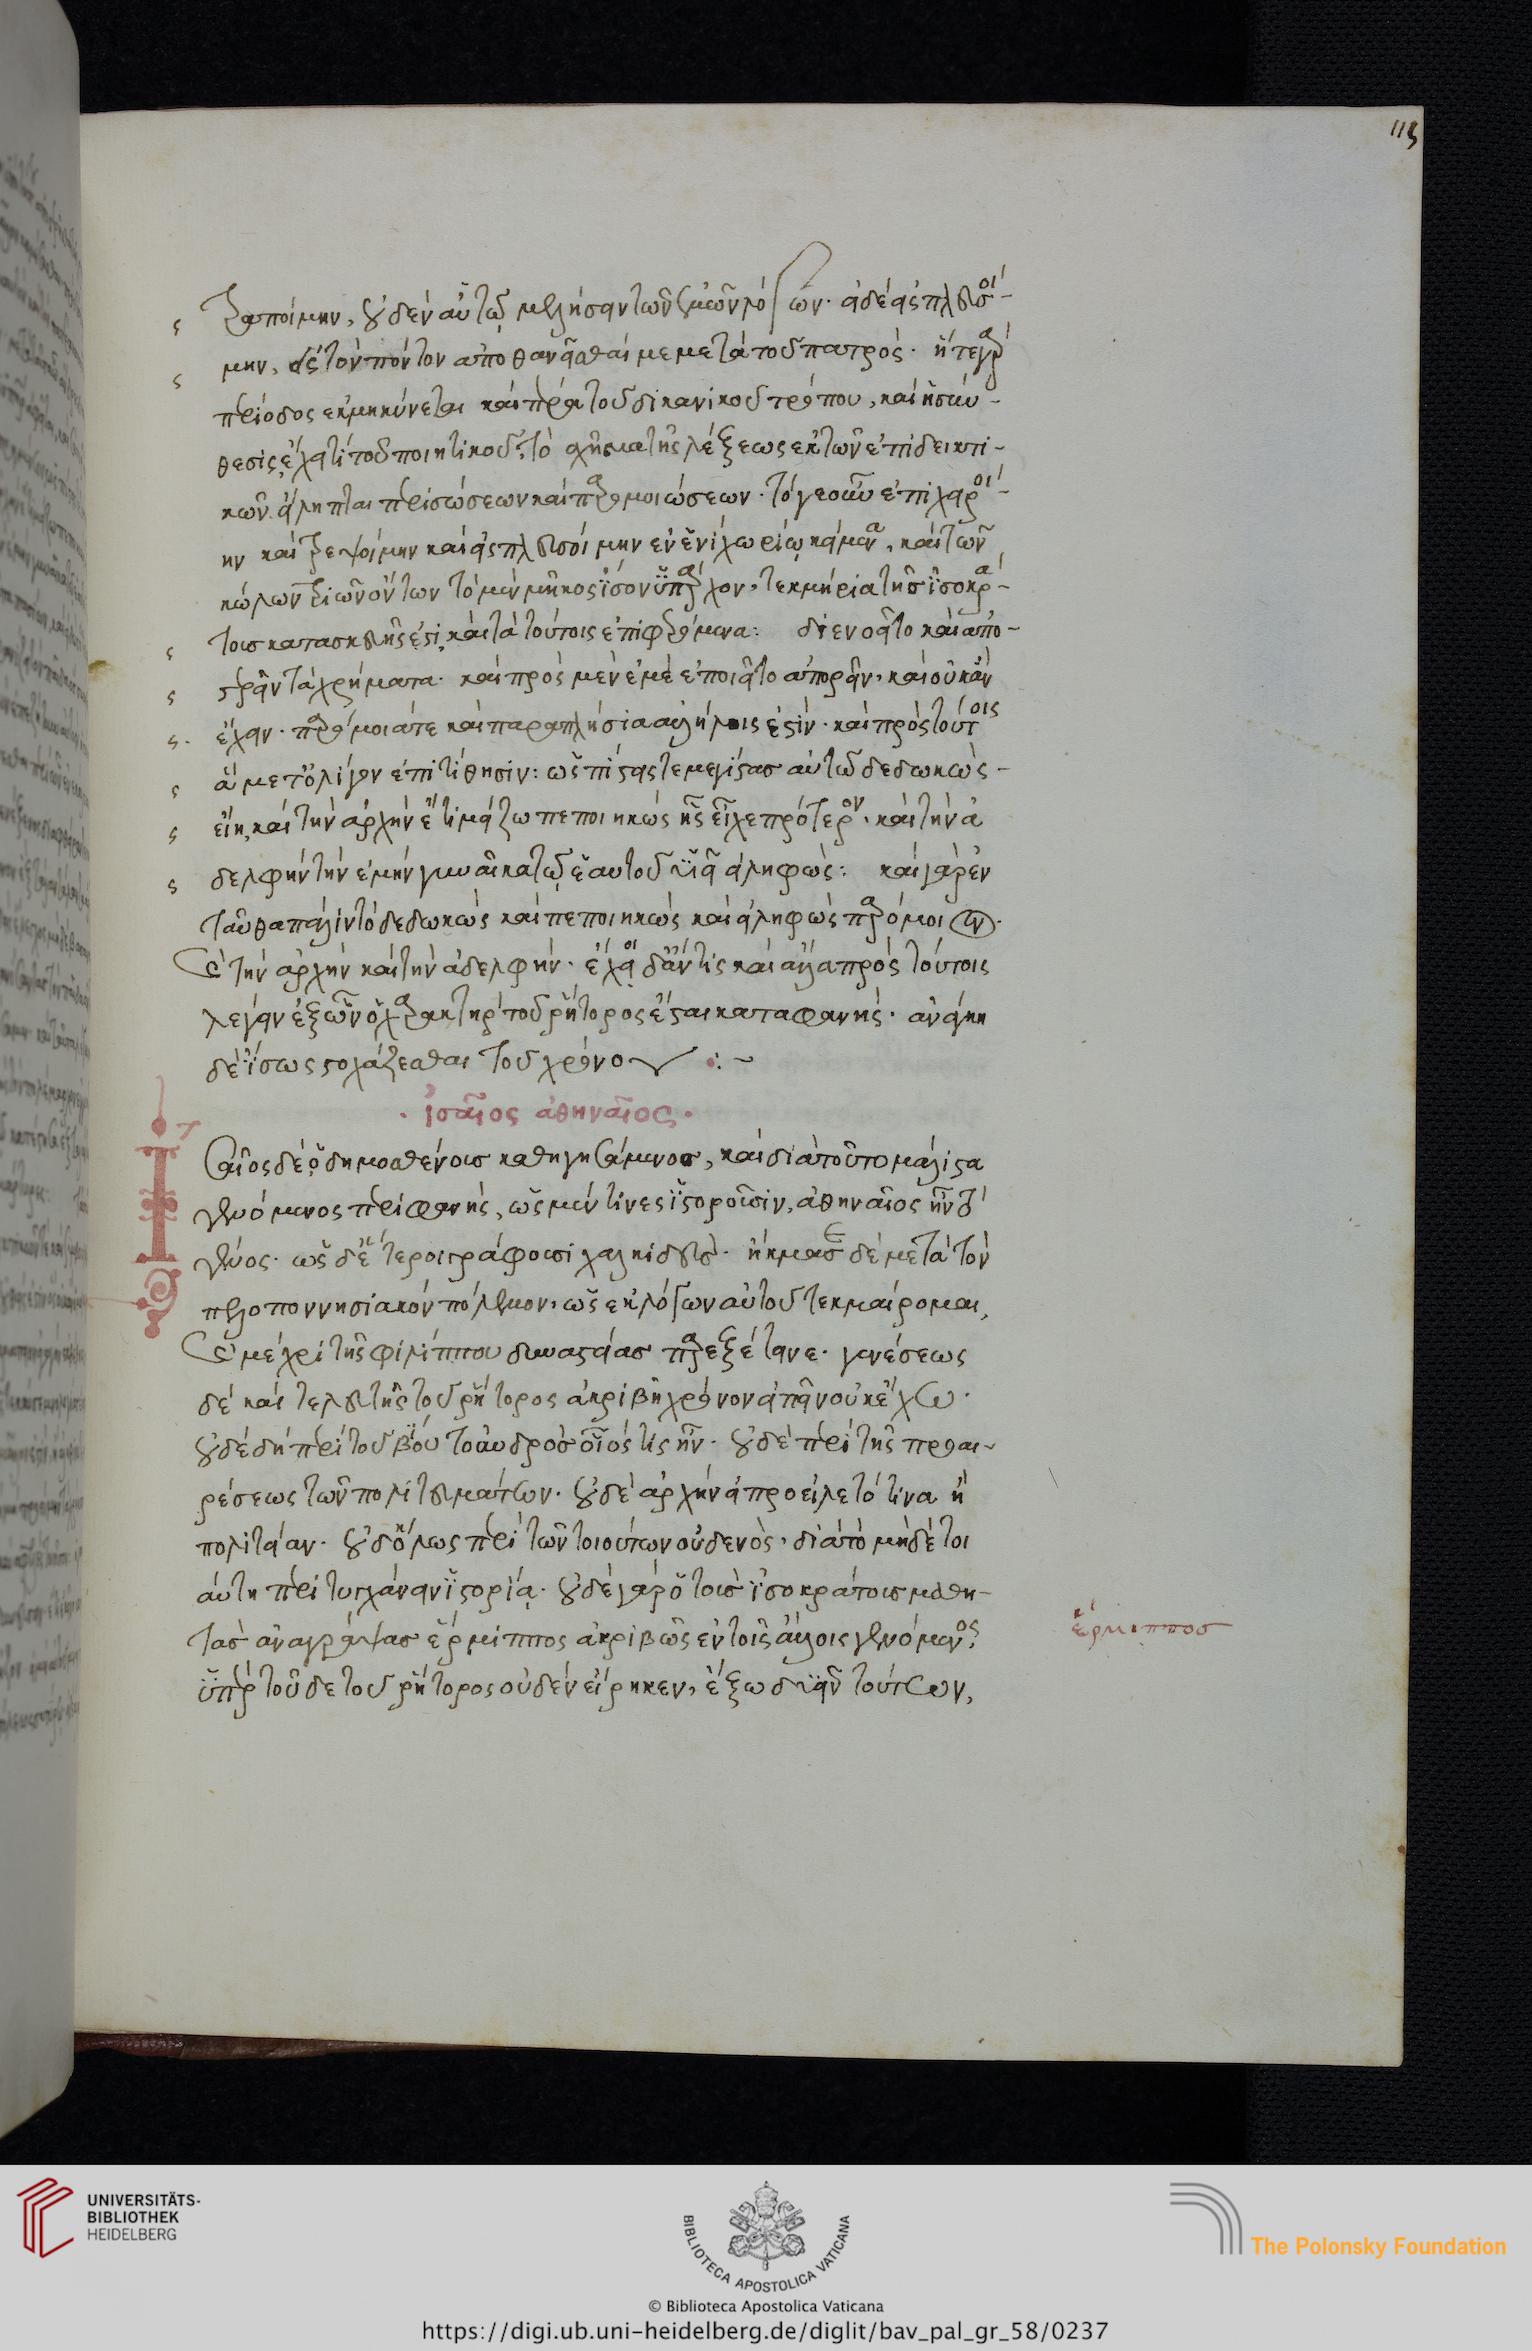 τραποίμην, οὐδὲν αὐτῷ μελήσειν τῶν ἐμῶν λόγων. εἰ δὲ εἰσπλευσοί-
μην εἰς τὸν πόντον ἀποθανεῖσθαί με μετὰ τοῦ πατρός. ἥ τε γὰρ
περίοδος ἐκμηκύνεται καὶ πέρα τοῦ δικανικοῦ τρόπου, καὶ ἡ σύν-
θεσις ἔχει τι τοῦ ποιητικοῦ. τὸ σχῆμα τῆς λέξεως ἐκ τῶν ἐπιδεικτι-
κῶν εἴληπται παρισώσεων καὶ παρομοιώσεων. τό γε οὖν ἐπιχειροί-
ην καὶ τρεψοίμην καὶ εἰσπλευσοίμην ἐν ἑνὶ χωρίῳ κείμενα, καὶ τῶν
κώλων τριῶν ὄντων τὸ μὲν μῆκος ἴσον ὑπάρχον, τεκμήρια τῆς ἰσοκρά-
τους κατασκευῆς ἐστι, καὶ τὰ τούτοις ἐπιφερόμενα: διενοεῖτο καὶ ἀπο-
στερεῖν τὰ χρήματα. καὶ πρὸς μὲν ἐμὲ ἐποιεῖτο ἀπορεῖν, καὶ οὐκ ἂν
ἔχειν. παρόμοιά τε καὶ παραπλήσια ἀλλήλοις ἐστίν. καὶ πρὸς τούτοις
ἃ μετ' ὀλίγον ἐπιτίθησιν: ὡς πίστεις τε μεγίστας αὐτῷ δεδωκὼς
εἴη, καὶ τὴν ἀρχὴν ἔτι μείζω πεποιηκὼς ἧς εἶχε πρότερον, καὶ τὴν ἀ
δελφὴν τὴν ἐμὴν γυναῖκα τῷ ἑαυτοῦ υἱεῖ εἰληφώς: καὶ γὰρ ἐν
ταῦθα πάλιν τὸ δεδωκὼς καὶ πεποιηκὼς καὶ εἰληφὼς παρόμοιον.
καὶ τὴν ἀρχὴν καὶ τὴν ἀδελφήν. ἔχοι δ' ἄν τις καὶ ἄλλα πρὸς τούτοις
λέγειν ἐξ ὧν ὁ χαρακτὴρ τοῦ ῥήτορος ἔσται καταφανής. ἀνάγκη
δὲ ἴσως στοχάζεσθαι τοῦ χρόνου :~
· ἰσαῖος ἀθηναῖος ·
Ἰσαῖος δὲ ὁ δημοσθένους καθηγησάμενος, καὶ διὰ τοῦτο μάλιστα
γενόμενος περιφανής, ὡς μέν τινες ἱστοροῦσιν, ἀθηναῖος ἦν τὸ
γένος. ὡς δὲ ἕτεροι γράφουσι χαλκιδεύς. ἤκμασε δὲ μετὰ τὸν
πελοποννησιακὸν πόλεμον, ὡς ἐκ λόγων αὐτοῦ τεκμαίρομαι,
καὶ μέχρι τῆς φιλίππου δυναστείας παρεξέτεινε. γενέσεως
δὲ καὶ τελευτῆς τοῦ ῥήτορος ἀκριβῆ χρόνον εἰπεῖν οὐκ ἔχω.
οὐδὲ δὴ περὶ τοῦ βίου τἀνδρὸς οἷός τις ἦν. οὐδὲ περὶ τῆς προαι-
ρέσεως τῶν πολιτευμάτων. οὐδὲ ἀρχὴν εἰ προείλετό τινα ἢ
πολιτείαν. οὐδ' ὅλως περὶ τῶν τοιούτων οὐδενός, διὰ τὸ μηδὲ τοι
αύτη περιτυγχάνειν ἱστορίᾳ. οὐδὲ γὰρ ὁ τοὺς ἰσοκράτους μαθη-
τὰς ἀναγράψας ἕρμιππος ἀκριβὴς ἐν τοῖς ἄλλοις γενόμενος,
ὑπὲρ τοῦδε τοῦ ῥήτορος οὐδὲν εἴρηκεν, ἔξω δυεῖν τούτων,
ἕρμιππος
UNIVERSITÄTS-
BIBLIOTHEK
HEIDELBERG
BIBLIOTECA APOSTOLICA VATICANA
The Polonsky Foundation
© Biblioteca Apostolica Vaticana
https://digi.ub.uni-heidelberg.de/diglit/bav_pal_gr_58/0237